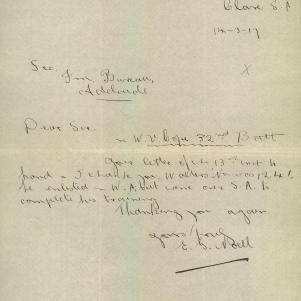 Clare S.A
14-3-17
Sec.
Inn. Bureau,
Adelaide
Dear Sir.
W.V. Cope 32nd Batt
Your letter of the 13th inst to
hand I thank you, Walter's No was
he enlisted in W.A. but came over S.A. to
complete his training.
Thanking you again
Yours truly